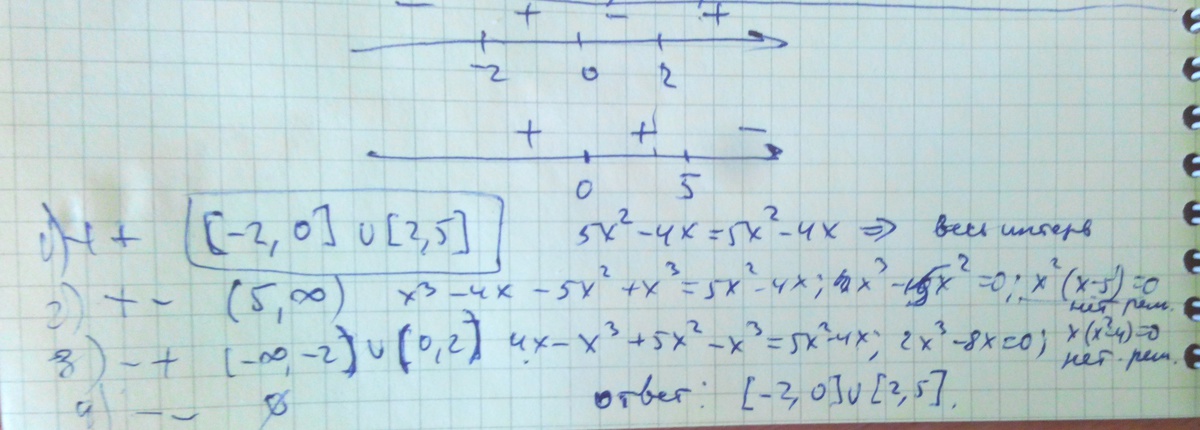 − + − +
-2 0 2
+ + −
0 5
1) + + [-2, 0] ∪ [2, 5] 5x² - 4x = 5x² - 4x ⇒ весь интерв
2) + - (5, ∞) x³ - 4x - 5x² + x³ = 5x² - 4x; 2x³ - 10x² = 0; x² (x-5) = 0 нет реш.
3) - + (-∞, -2) ∪ (0, 2) 4x - x³ + 5x² - x³ = 5x² - 4x; 2x³ - 8x = 0; x(x²-4) = 0 нет реш.
4) - - ∅ ответ: [-2, 0] ∪ [2, 5].